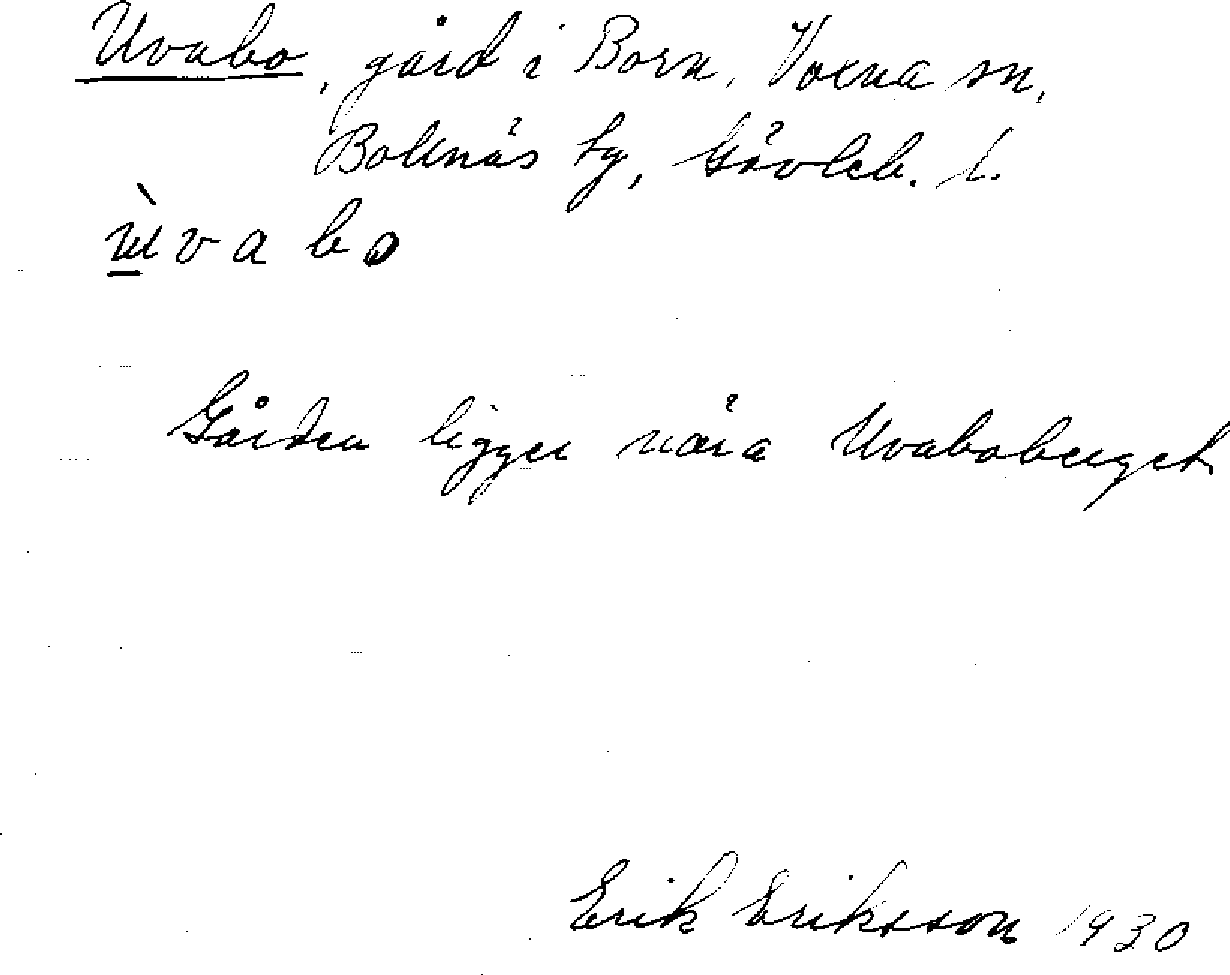 Uvabo, gård i Born, Voxna sn,
Bollnäs tg, Gävleb. l.
ùvabo
Gården ligger nära Uvaboberget
Erik Eriksson 1930